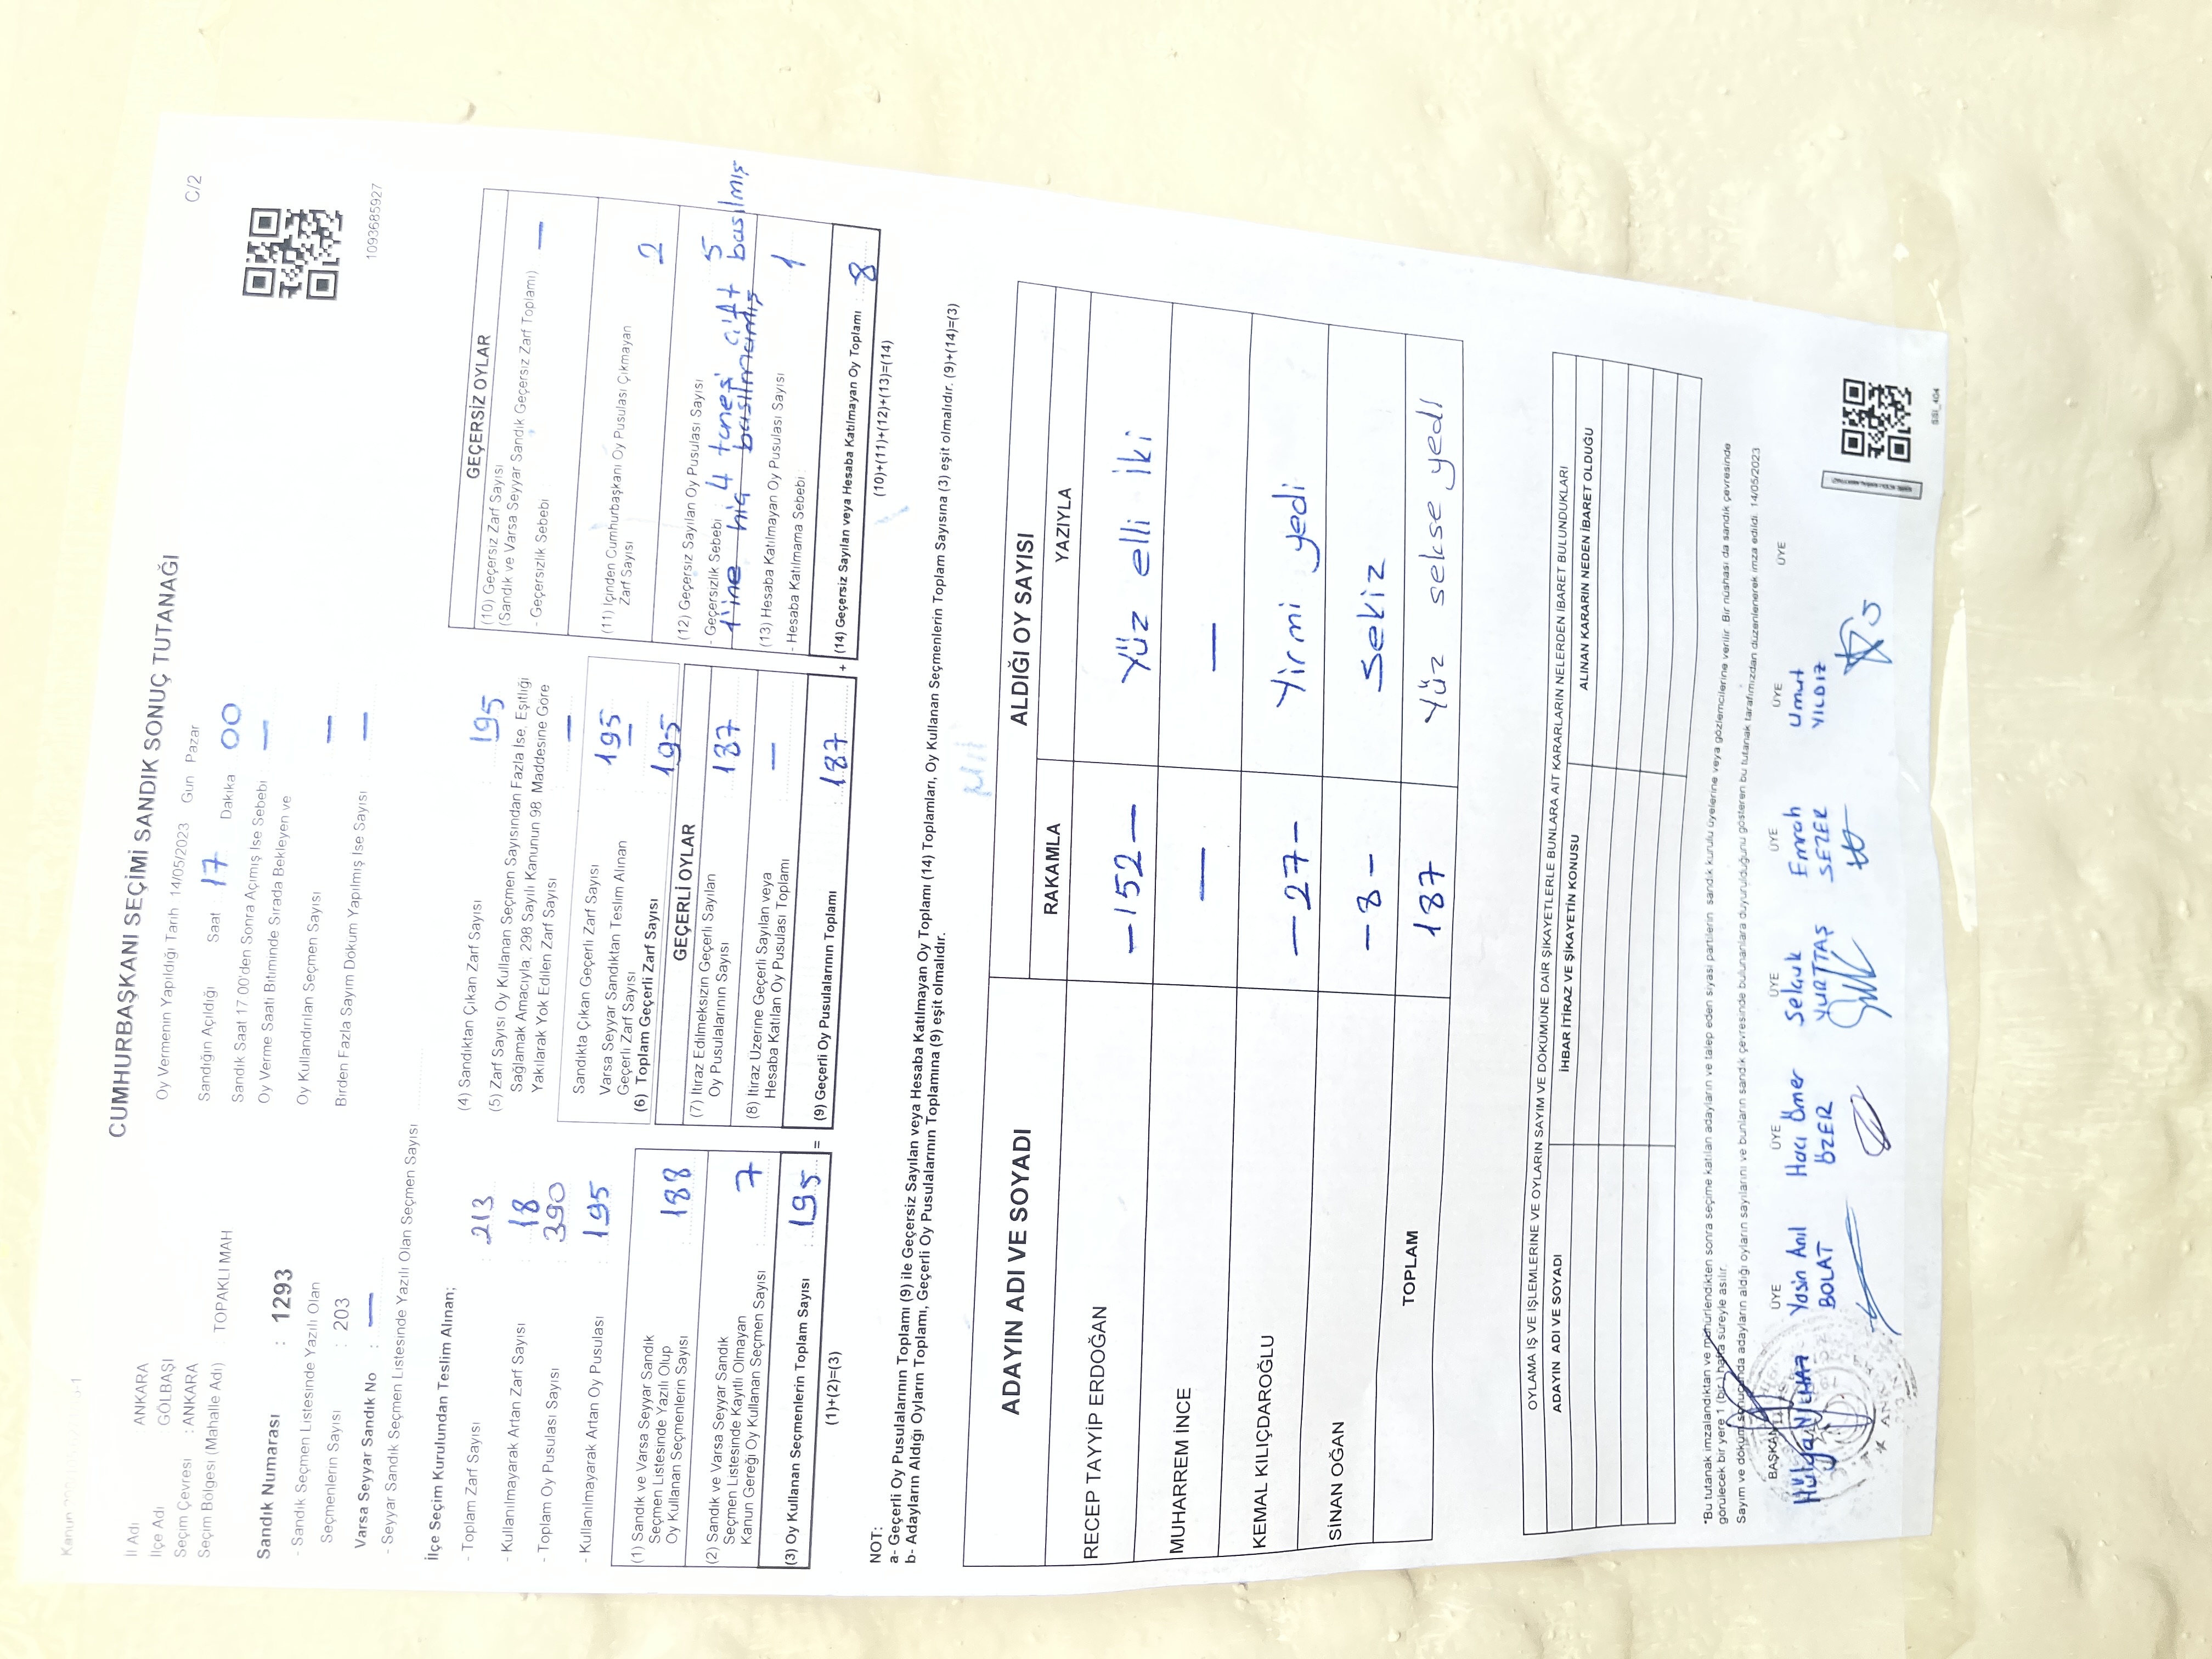 CUMHURBAŞKANI SEÇİMİ SANDIK SONUÇ TUTANAĞI
C/2
İl Adı ANKARA
İlçe Adı GÖLBAŞI
Seçim Çevresi : ANKARA
Seçim Bölgesi (Mahalle Adı) TOPAKLI MAH
Sandık Numarası : 1293
- Sandık Seçmen Listesinde Yazılı Olan
Seçmenlerin Sayısı : 203
Varsa Seyyar Sandık No : —
- Seyyar Sandık Seçmen Listesinde Yazılı Olan Seçmen Sayısı
Oy Vermenin Yapıldığı Tarih 14/05/2023 Gün Pazar
Sandığın Açıldığı Saat 17 Dakika 00
Sandık Saat 17 00'den Sonra Açımış İse Sebebi —
Oy Verme Saati Bitiminde Sırada Bekleyen ve
Oy Kullandırılan Seçmen Sayısı —
Birden Fazla Sayım Döküm Yapılmış İse Sayısı —
1093685927
İlçe Seçim Kurulundan Teslim Alınan;
- Toplam Zarf Sayısı : 213
- Kullanılmayarak Artan Zarf Sayısı : 18
- Toplam Oy Pusulası Sayısı : 390
- Kullanılmayarak Artan Oy Pusulası : 195
(1) Sandık ve Varsa Seyyar Sandık
Seçmen Listesinde Yazılı Olup
Oy Kullanan Seçmenlerin Sayısı : 188
(2) Sandık ve Varsa Seyyar Sandık
Seçmen Listesinde Kayıtlı Olmayan
Kanun Gereği Oy Kullanan Seçmen Sayısı : 7
(3) Oy Kullanan Seçmenlerin Toplam Sayısı : 195
(1)+(2)=(3)
=
(4) Sandıktan Çıkan Zarf Sayısı : 195
(5) Zarf Sayısı Oy Kullanan Seçmen Sayısından Fazla İse, Eşitliği
Sağlamak Amacıyla, 298 Sayılı Kanunun 98. Maddesine Göre
Yakılarak Yok Edilen Zarf Sayısı —
Sandıkta Çıkan Geçerli Zarf Sayısı 195
Varsa Seyyar Sandıktan Teslim Alınan
Geçerli Zarf Sayısı —
(6) Toplam Geçerli Zarf Sayısı 195
GEÇERLİ OYLAR
(7) İtiraz Edilmeksizin Geçerli Sayılan
Oy Pusulalarının Sayısı 187
(8) İtiraz Üzerine Geçerli Sayılan veya
Hesaba Katılan Oy Pusulası Toplamı —
(9) Geçerli Oy Pusulalarının Toplamı : 187
+
GEÇERSİZ OYLAR
(10) Geçersiz Zarf Sayısı
(Sandık ve Varsa Seyyar Sandık Geçersiz Zarf Toplamı) —
- Geçersizlik Sebebi
(11) İçinden Cumhurbaşkanı Oy Pusulası Çıkmayan
Zarf Sayısı 2
(12) Geçersiz Sayılan Oy Pusulası Sayısı 5
- Geçersizlik Sebebi : 4 tanesi çift basılmış
1'ine hiç basılmamış
(13) Hesaba Katılmayan Oy Pusulası Sayısı 1
- Hesaba Katılmama Sebebi :
(14) Geçersiz Sayılan veya Hesaba Katılmayan Oy Toplamı : 8
(10)+(11)+(12)+(13)=(14)
NOT:
a- Geçerli Oy Pusulalarının Toplamı (9) ile Geçersiz Sayılan veya Hesaba Katılmayan Oy Toplamı (14) Toplamları, Oy Kullanan Seçmenlerin Toplam Sayısına (3) eşit olmalıdır. (9)+(14)=(3)
b- Adayların Aldığı Oyların Toplamı, Geçerli Oy Pusulalarının Toplamına (9) eşit olmalıdır.
ADAYIN ADI VE SOYADI ALDIĞI OY SAYISI
RAKAMLA YAZIYLA
RECEP TAYYİP ERDOĞAN —152— Yüz elli iki
MUHARREM İNCE — —
KEMAL KILIÇDAROĞLU —27— Yirmi yedi
SİNAN OĞAN —8— Sekiz
TOPLAM 187 Yüz sekse yedi
OYLAMA İŞ VE İŞLEMLERİNE VE OYLARIN SAYIM VE DÖKÜMÜNE DAİR ŞİKAYETLERLE BUNLARA AİT KARARLARIN NELERDEN İBARET BULUNDUKLARI
ADAYIN ADI VE SOYADI İHBAR İTİRAZ VE ŞİKAYETİN KONUSU ALINAN KARARIN NEDEN İBARET OLDUĞU
*Bu tutanak imzalandıktan ve mühürlendikten sonra seçime katılan adayların ve talep eden siyasi partilerin sandık kurulu üyelerine veya gözlemcilerine verilir. Bir nüshası da sandık çevresinde
görülecek bir yere 1 (bir) hafta süreyle asılır.
Sayım ve döküm sonucunda adayların aldığı oyların sayılarını ve bunların sandık çevresinde bulunanlara duyurulduğunu gösteren bu tutanak tarafımızdan düzenlenerek imza edildi. 14/05/2023
BAŞKAN ÜYE ÜYE ÜYE ÜYE ÜYE ÜYE
Hülya Yasin Anıl Hacı Ömer Selçuk Emrah Umut
BOLAT ÖZER YURTTAŞ SEZER YILDIZ
SSI_404